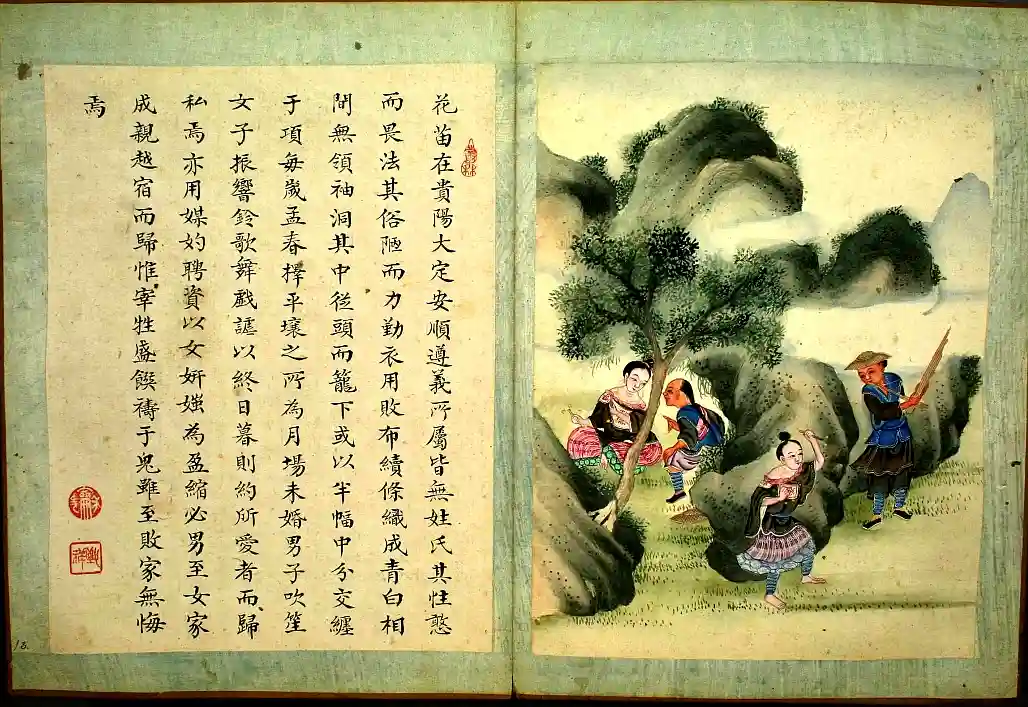 花苗在貴陽大定安順遵義所屬皆無姓氏其性憨
而畏法其俗陋而力勤衣用敗布績條織成青白相
間無領袖洞其中從頭而籠下或以半幅中分交纏
于項每歲孟春擇平壤之所為月場未婚男子吹笙
女子振響鈴歌舞戲謔以終日暮則約所愛者而歸
私焉亦用媒妁聘資以女妍媸為盈縮必男至女家
成親越宿而歸惟宰牲盛饌禱于鬼雖至敗家無悔
焉
13.